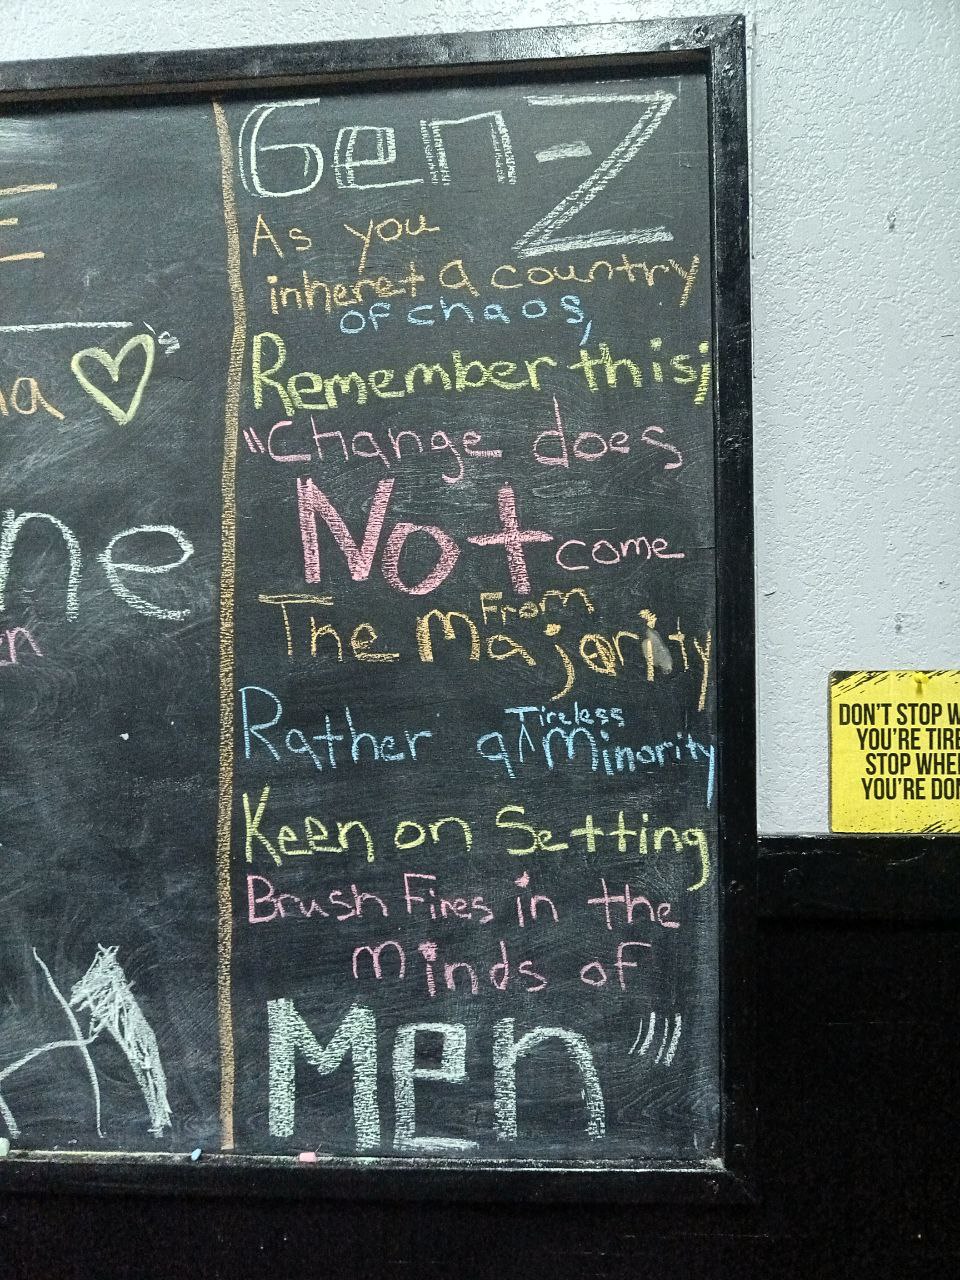 Gen-Z
As you
inheret a country
of chaos,
Remember this;
"Change does
Not come
From
The Majority
Tireless
Rather a Minority
Keen on Setting
Brush Fires in the
minds of
Men"
's
ne
DON'T STOP W
YOU'RE TIRE
STOP WHE
YOU'RE DON